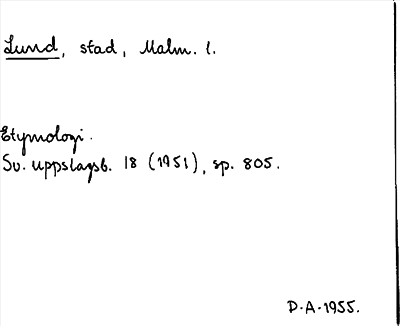 Lund, stad, Malm. l.
Etymologi.
Sv. uppslagsb. 18 (1951), sp. 805.
D.A. 1955.